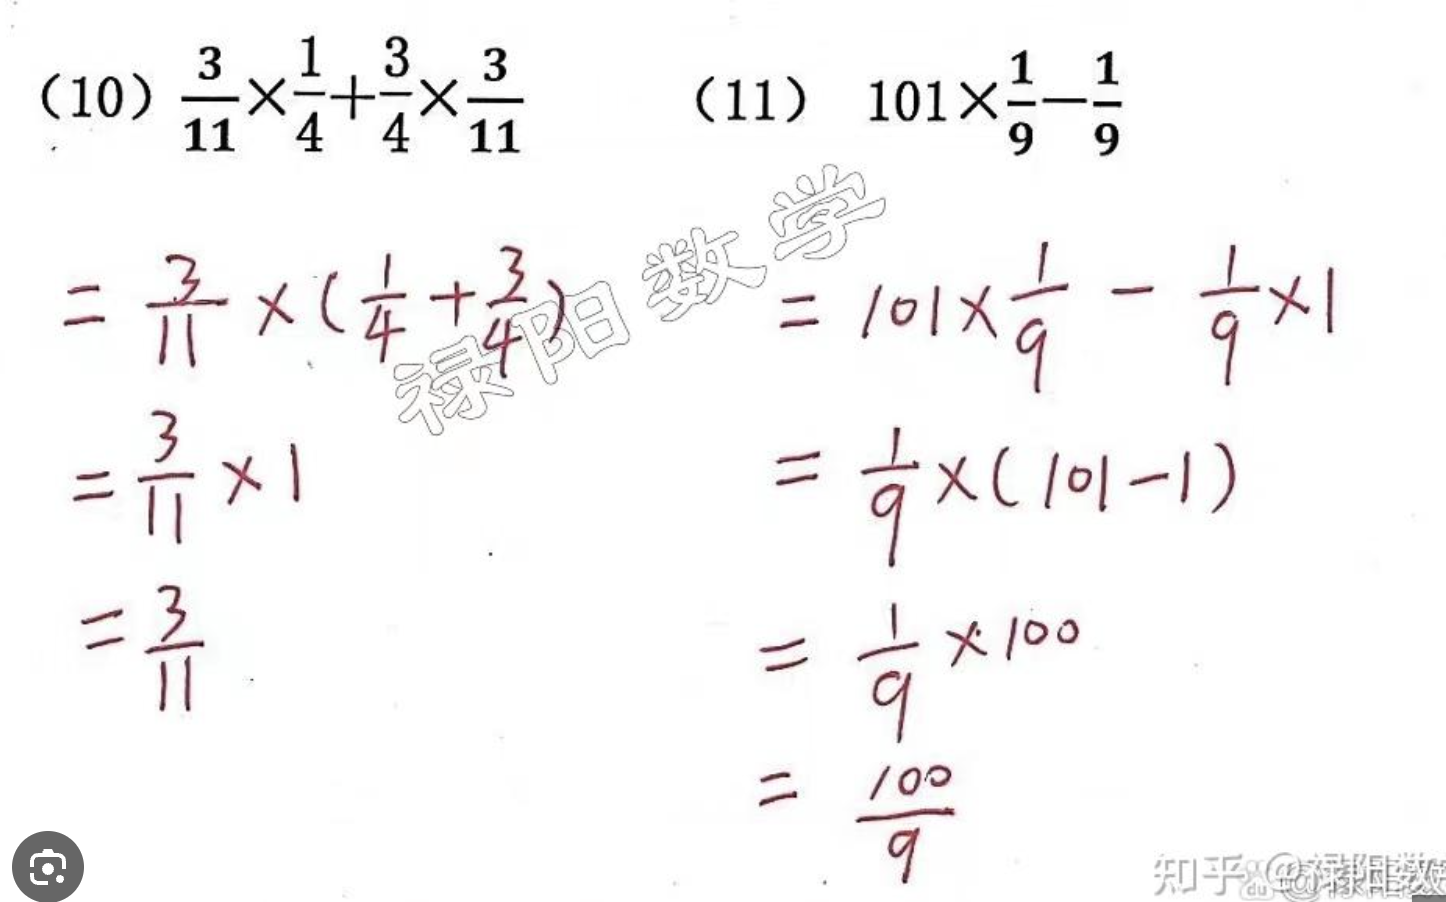 (10) 3/11×1/4+3/4×3/11
=3/11×(1/4+3/4)
=3/11×1
=3/11
(11) 101×1/9−1/9
=101×1/9−1/9×1
=1/9×(101−1)
=1/9×100
=100/9
禄阳数学
知乎 @禄阳数
du